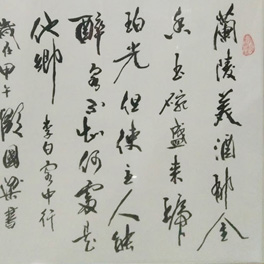 蘭陵美酒鬱金
香玉碗盛來琥
珀光但使主人能
醉客不知何處是
他鄉 李白客中行
歲在甲午 國梁書